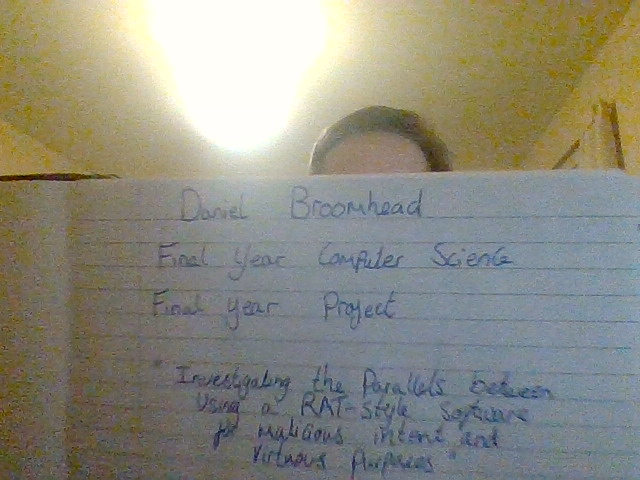 Daniel Broomhead
Final Year Computer Science
Final year Project
"Investigating the Parallels between
Using a RAT-Style Software
for malicious intent and
Virtuous Purposes"